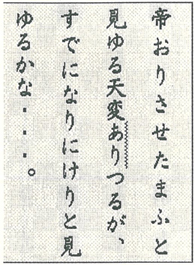 帝おりさせたまふと
見ゆる天変ありつるが、
すでになりにけりと見
ゆるかな・・・。